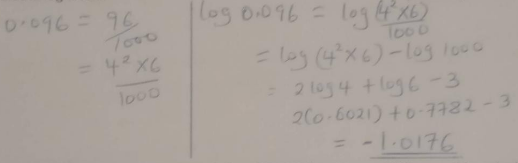 0.096 = 96/1000
= 4² × 6/1000
log 0.096 = log (4² × 6)/1000
= log (4² × 6) - log 1000
= 2 log 4 + log 6 - 3
2(0.6021) + 0.7782 - 3
= -1.0176